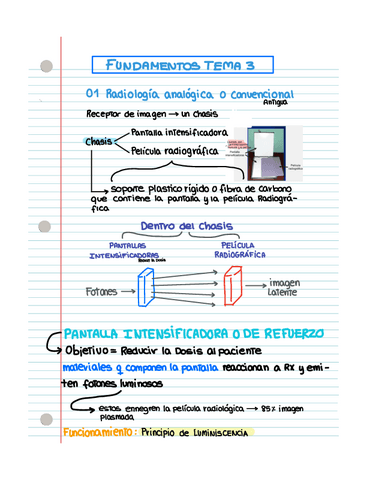 FUNDAMENTOS TEMA 3
01 Radiología analógica o convencional
Antigua
Receptor de imagen → un chasis
Pantalla intensificadora
Chasis
Película radiográfica
→ soporte plastico rígido o fibra de carbono
que contiene la pantalla y la película Radiográ-
fica
Dentro del chasis
PANTALLAS PELÍCULA
INTENSIFICADORAS RADIOGRÁFICA
Fotones → imagen
latente
PANTALLA INTENSIFICADORA O DE REFUERZO
→ Objetivo = Reducir la Dosis al paciente
materiales q componen la pantalla reaccionan a Rx y emi-
ten fotones luminosos
→ estos ennegren la película radiológica → 85% imagen
plasmada
Funcionamiento: Principio de LUMINISCENCIA